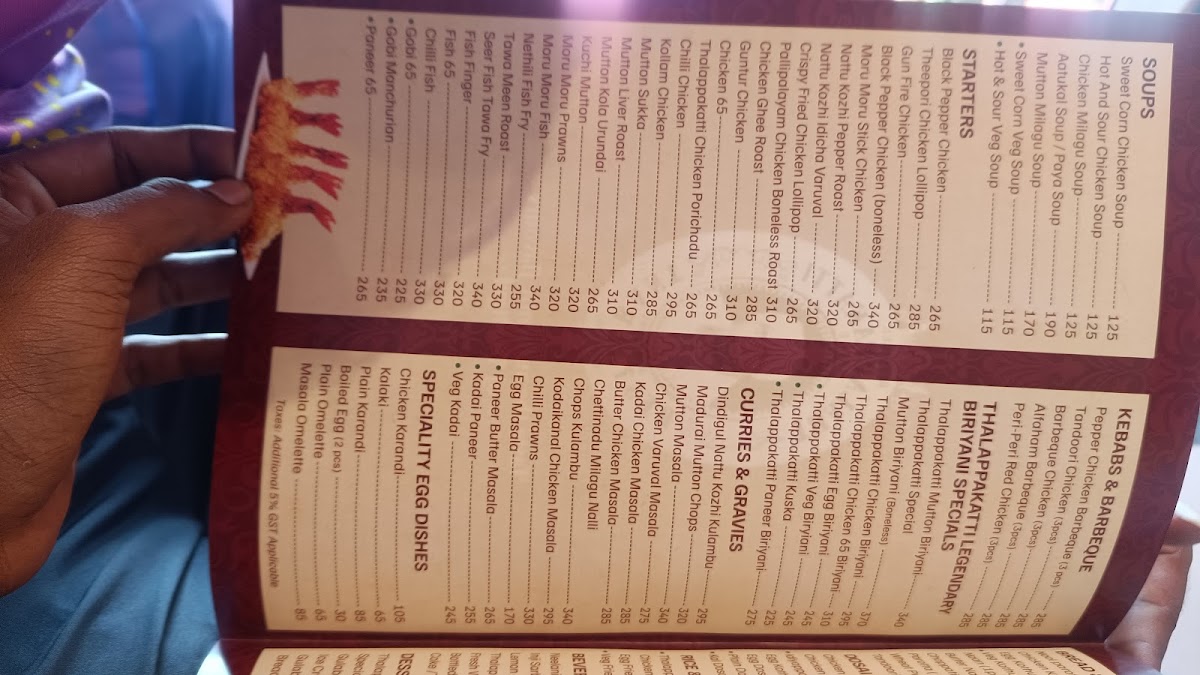 SOUPS
Sweet Corn Chicken Soup 125
Hot And Sour Chicken Soup 125
Chicken Milagu Soup 125
Aatukal Soup / Paya Soup 190
Mutton Milagu Soup 170
• Sweet Corn Veg Soup 115
• Hot & Sour Veg Soup 115
STARTERS
Black Pepper Chicken 265
Theepori Chicken Lollipop 285
Gun Fire Chicken 265
Black Pepper Chicken (boneless) 340
Moru Moru Stick Chicken 265
Nattu Kozhi Pepper Roast 320
Nattu Kozhi Idicha Varuval 320
Crispy Fried Chicken Lollipop 265
Pallipalayam Chicken Boneless Roast 310
Chicken Ghee Roast 285
Guntur Chicken 310
Chicken 65 265
Thalappakatti Chicken Porichadu 265
Chilli Chicken 295
Kollam Chicken 285
Mutton Sukka 310
Mutton Liver Roast 310
Mutton Kola Urundai 265
Kuchi Mutton 320
Moru Moru Prawns 320
Moru Moru Fish 340
Nethili Fish Fry 255
Tawa Meen Roast 330
Seer Fish Tawa Fry 340
Fish Finger 320
Fish 65 330
Chilli Fish 330
• Gobi 65 225
• Gobi Manchurian 235
• Paneer 65 265
KEBABS & BARBEQUE
Pepper Chicken Barbeque 285
Tandoori Chicken (3 pcs) 285
Barbeque Chicken (3pcs) 285
Alfaham Barbeque (3pcs) 285
Peri-Peri Red Chicken (3pcs) 285
THALAPPAKATTI LEGENDARY
BIRIYANI SPECIALS
Thalappakatti Mutton Biriyani 340
Thalappakatti Special
Mutton Biriyani (Boneless) 370
Thalappakatti Chicken Biriyani 295
Thalappakatti Chicken 65 Biriyani 310
Thalappakatti Egg Biriyani 245
• Thalappakatti Veg Biryiani 245
• Thalappakatti Kuska 225
• Thalappakatti Paneer Biriyani 275
CURRIES & GRAVIES
Dindigul Nattu Kozhi Kulambu 295
Madurai Mutton Chops 320
Mutton Masala 340
Chicken Varuval Masala 275
Kadai Chicken Masala 285
Butter Chicken Masala 285
Chettinadu Milagu Nalli
Chops Kulambu 340
Kodaikanal Chicken Masala 295
Chilli Prawns 330
Egg Masala 170
• Paneer Butter Masala 265
• Kadai Paneer 255
• Veg Kadai 245
SPECIALITY EGG DISHES
Chicken Karandi 105
Kalaki 65
Plain Karandi 85
Boiled Egg (2 pcs) 30
Plain Omelette 65
Masala Omelette 85
Taxes: Additional 5% GST Applicable